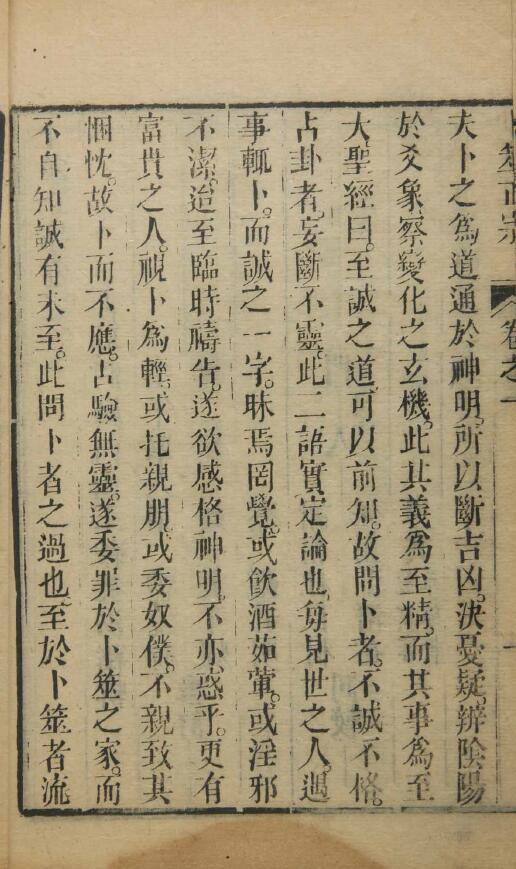 卜筮正宗 卷之一
夫卜之爲道通於神明。所以斷吉凶。決憂疑。辨陰陽
於爻象。察變化之玄機。此其義爲至精。而其事爲至
大。聖經曰。至誠之道。可以前知。故問卜者。不誠不格。
占卦者。妄斷不靈。此二語實定論也。每見世之人。遇
事輒卜。而誠之一字。昧焉罔覺。或飲酒茹葷。或淫邪
不潔。迨至臨時禱告。遂欲感格神明。不亦惑乎。更有
富貴之人。視卜爲輕。或托親朋。或委奴僕。不親致其
悃忱。故卜而不應。占驗無靈。遂委罪於卜筮之家。而
不自知誠有未至。此問卜者之過也。至於卜筮者流